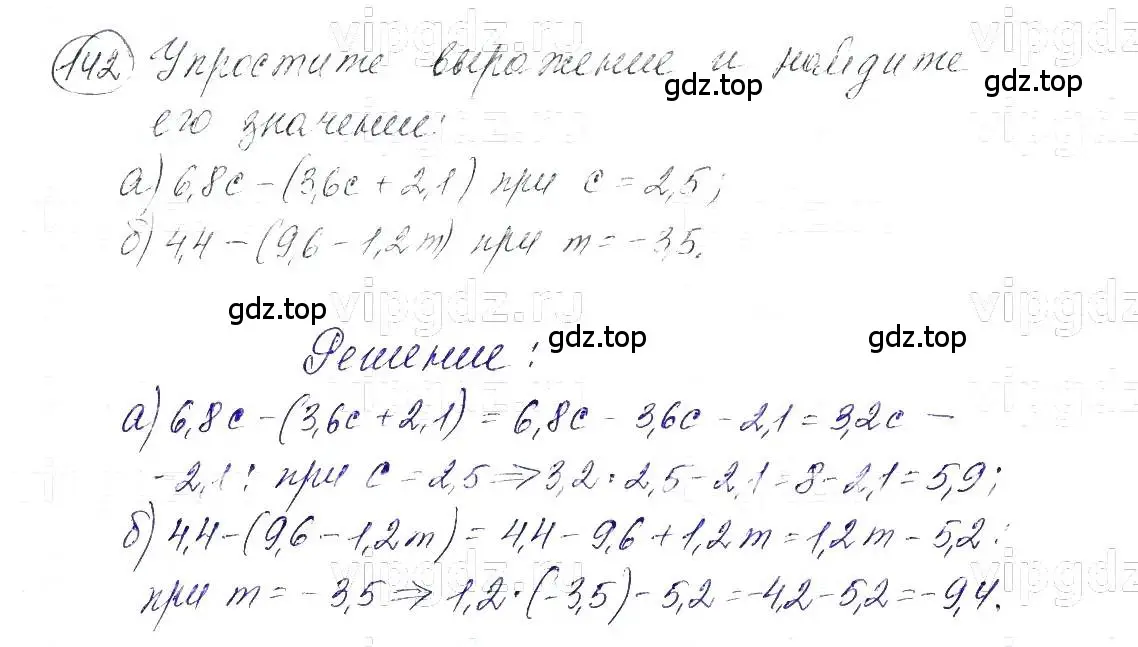 142 Упростите выражение и найдите
его значение:
а) 6,8c - (3,6c + 2,1) при c = 2,5;
б) 4,4 - (9,6 - 1,2m) при m = -3,5.
Решение:
а) 6,8c - (3,6c + 2,1) = 6,8c - 3,6c - 2,1 = 3,2c -
- 2,1: при c = 2,5 => 3,2 · 2,5 - 2,1 = 8 - 2,1 = 5,9;
б) 4,4 - (9,6 - 1,2m) = 4,4 - 9,6 + 1,2m = 1,2m - 5,2:
при m = - 3,5 => 1,2 · (-3,5) - 5,2 = -4,2 - 5,2 = -9,4.
gdz.top
gdz.top
gdz.top
gdz.top
gdz.top
vipgdz.ru
vipgdz.ru
vipgdz.ru
vipgdz.ru